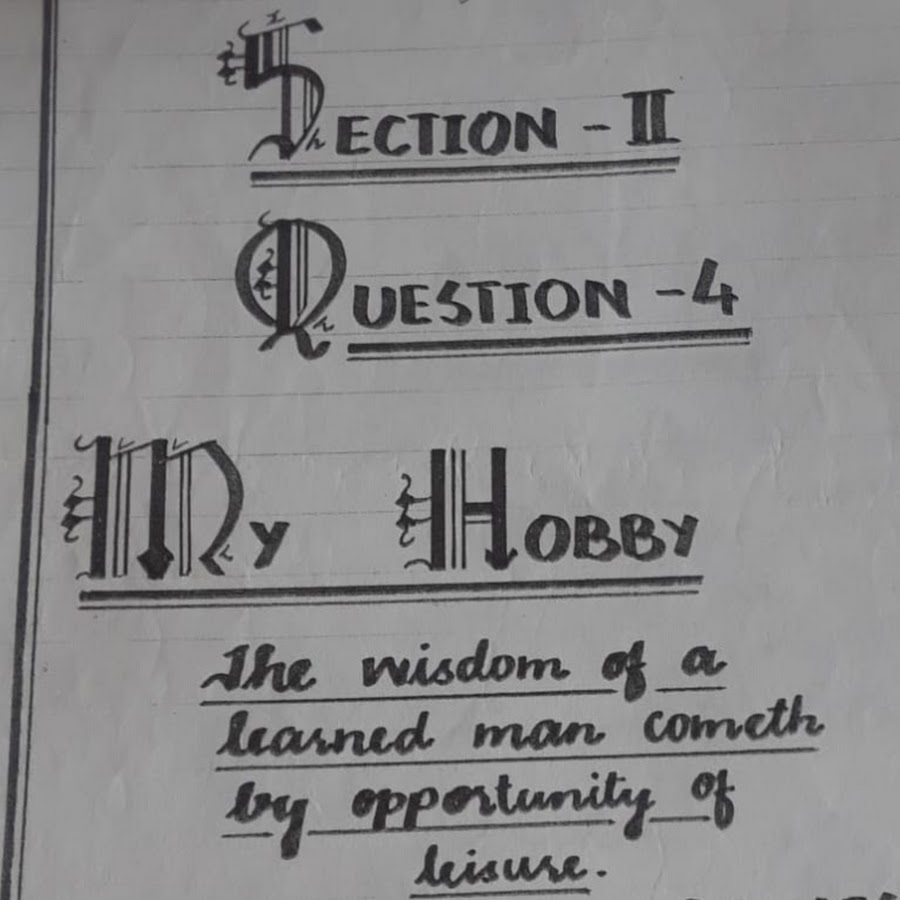 SECTION - II
QUESTION - 4
MY HOBBY
The wisdom of a
learned man cometh
by opportunity of
leisure.